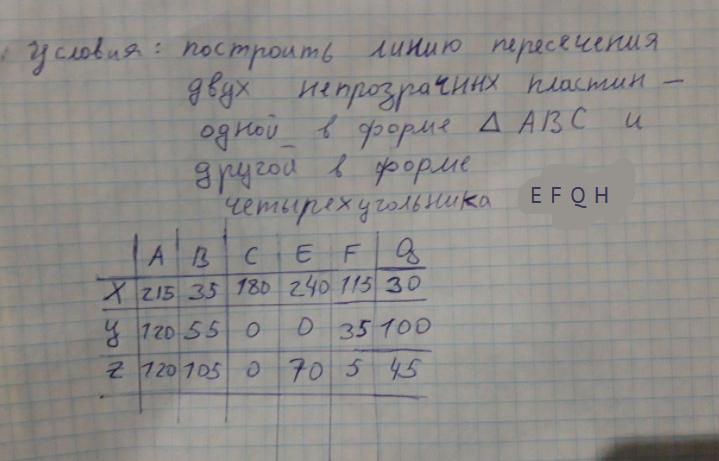 Условия: построить линию пересечения
двух непрозрачних пластин –
одной в форме Δ ABC и
другой в форме
четырехугольника EFQH
A B C E F Q
X 215 35 180 240 115 30
y 120 55 0 0 35 100
z 120 105 0 70 5 45